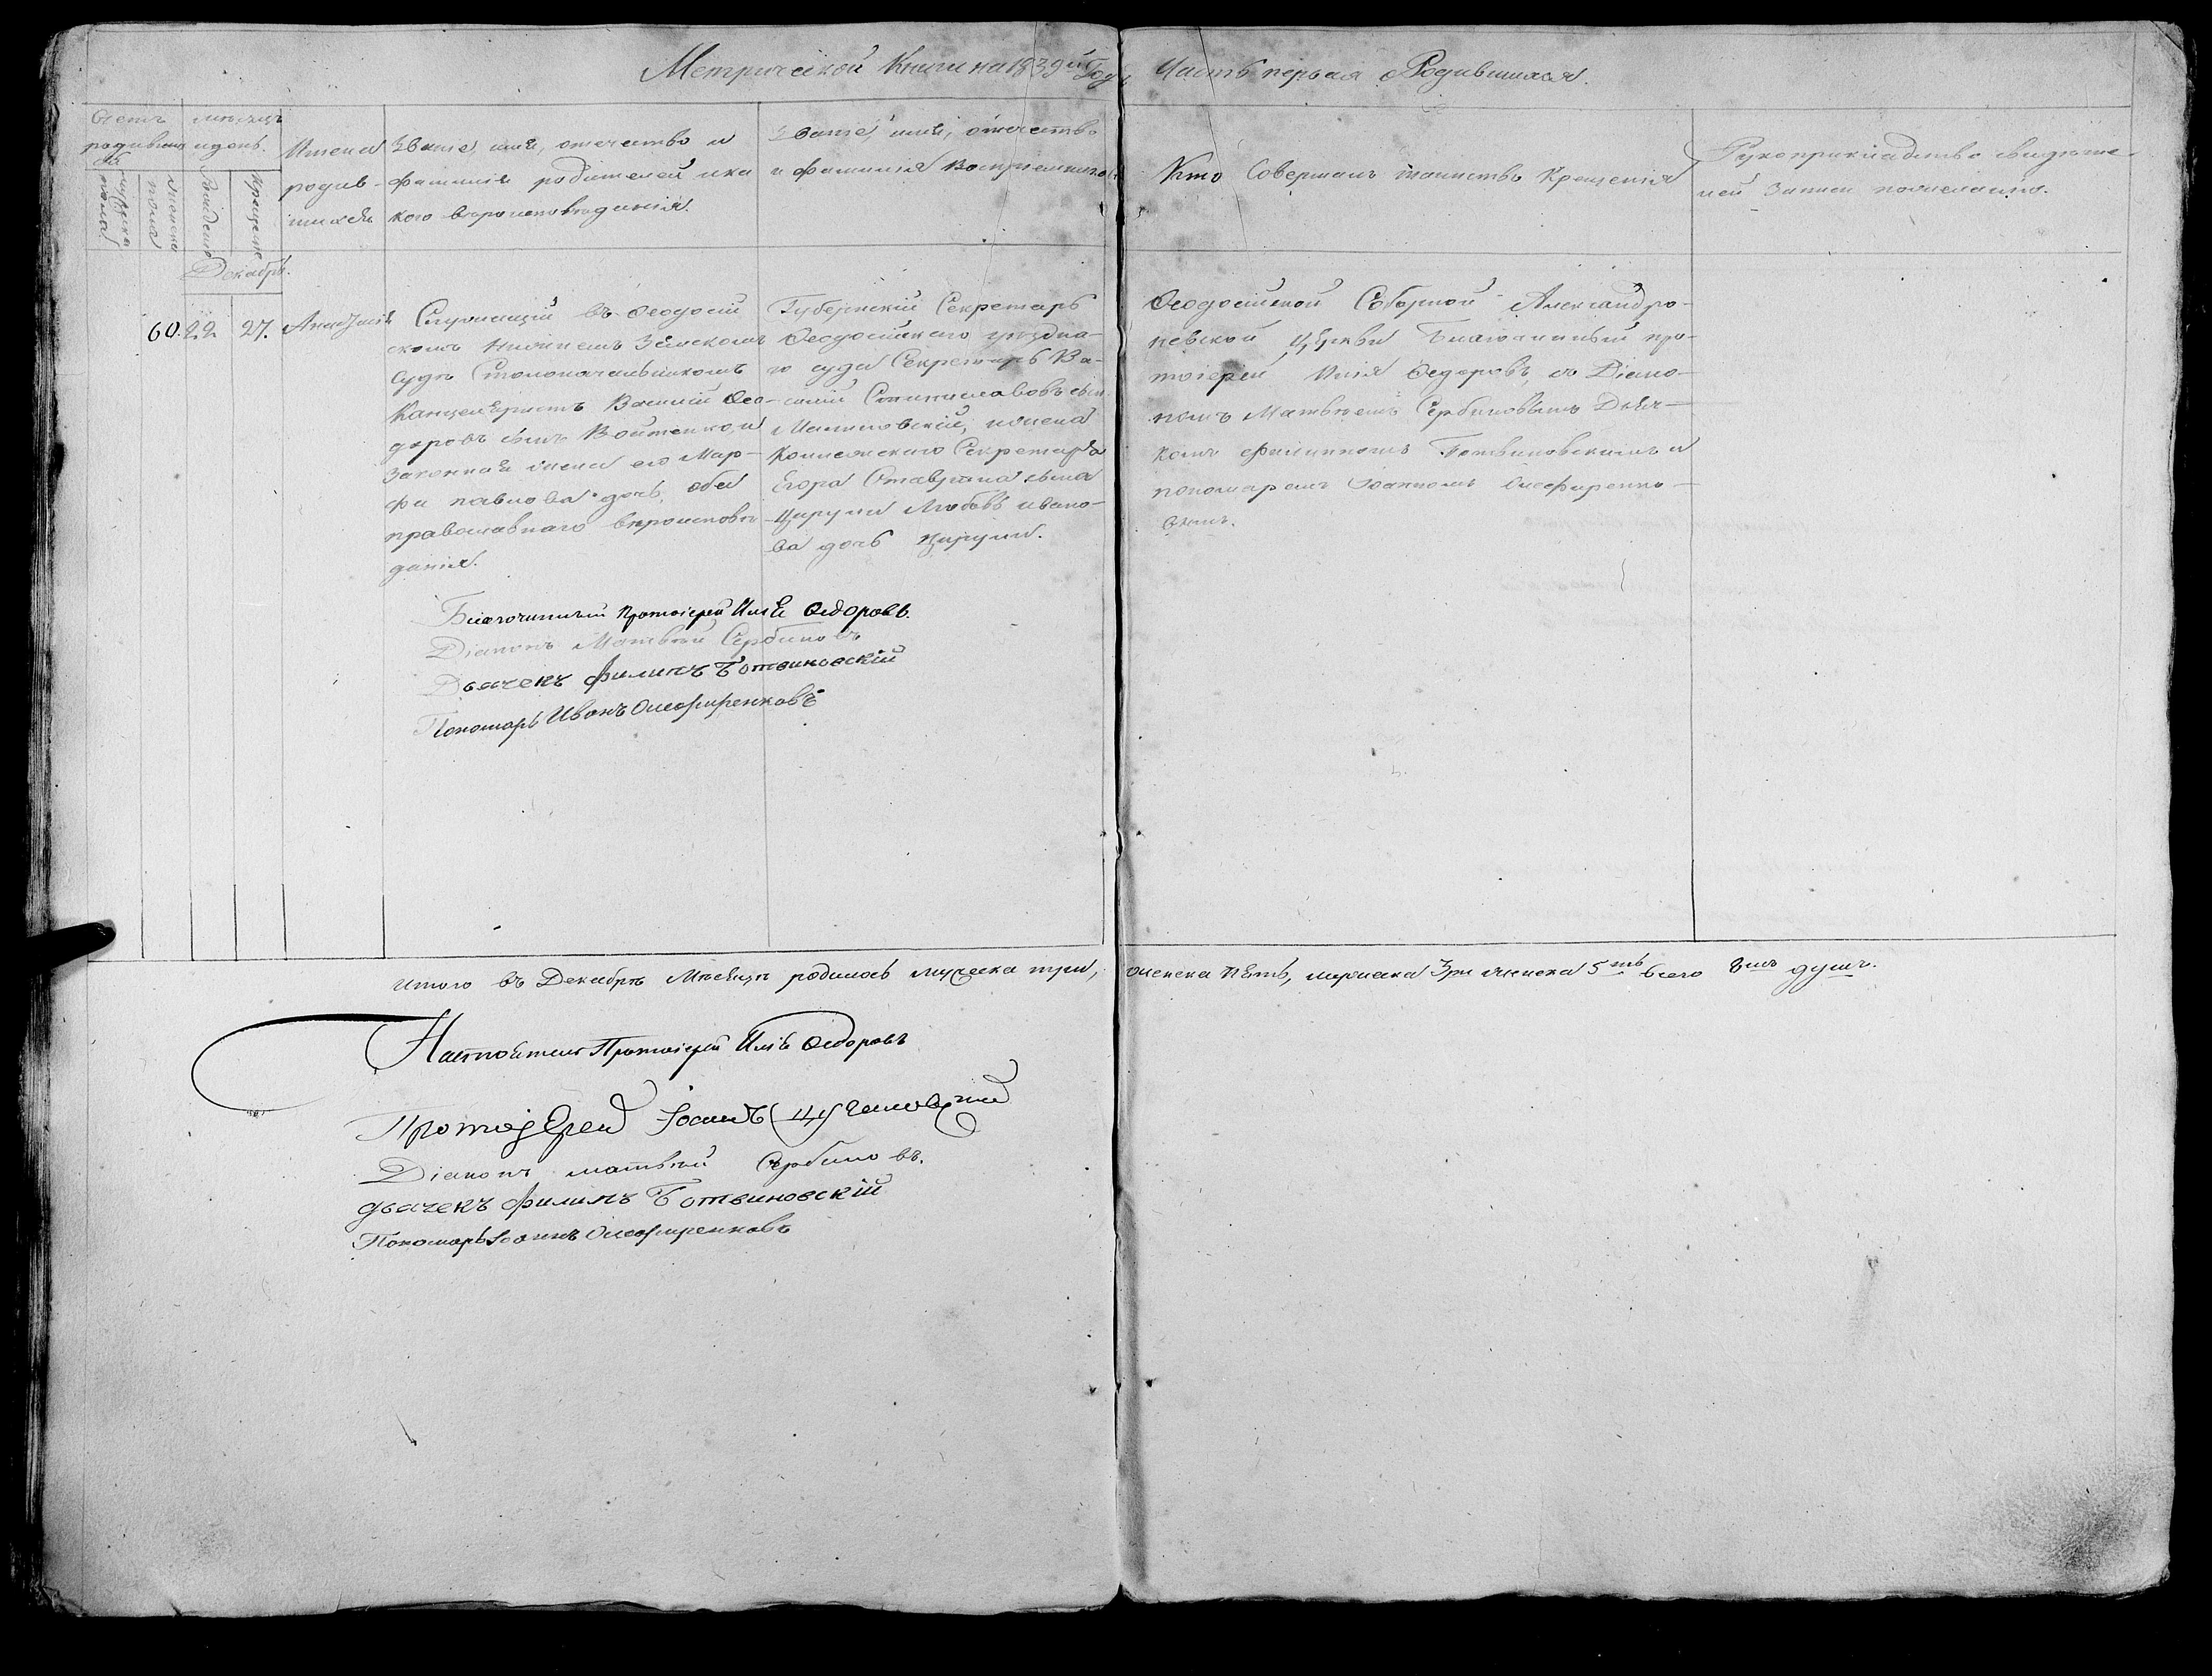 Метрической Книги на 1839й Годъ Часть первая о Родившихся.
Счетъ родившихся
мужеска пола
женска пола
мѣсяцъ и день.
Рожденія
Крещенія
Имена родив-
шихся
Званіе, имя, отечество и
фамилія родителей и ка
кого вѣроисповѣданія.
Званіе, имя, отечество
и фамилія Воспріемниковъ
Кто Совершалъ таинство Крещенія
Рукоприкладство свидѣте
лей записи по желанію.
Декабрь.
60. 22 27. Анастасія
Служащій въ Ѳеодосій
скомъ Нижнемъ Земскомъ
Судѣ Столоначальникомъ
Канцеляристъ Василій Ѳео-
доровъ сынъ Войтенко, и
Законная жена его Мар-
фа Павлова дочь, оба
православнаго вѣроисповѣ
данія.
Губернскій Секретарь
Ѳеодосійскаго уѣздна-
го суда Секретарь Ва-
силій Станиславовъ сынъ
Малиновскій, и жена
Колежскаго Секретаря
Егора Ставрина сына
Цирули Любовь Ивано-
ва дочь Цирули.
Ѳеодосійской Соборной Александро-
невской Церкви Благочинный про-
тоіерей Илія Ѳедоровъ, съ Діако-
номъ Матвѣемъ Сербиновымъ Дьяч-
комъ Филиппомъ Ботвиновскимъ и
пономаремъ Іоанномъ Олефиренко-
вымъ.
Благочинный Протоіерей Илія Ѳедоровъ.
Діаконъ Матвѣй Сербиновъ
Дьячекъ Филипъ Ботвиновскій
Пономарь Иванъ Олефиренковъ
Итого въ Декабрѣ Мѣсяцѣ родилось мужеска три, женска пять, мужеска 3ри женска 5ть всего 8мь душъ.
Настоятель Протоіерей Илія Ѳедоровъ
Протоіерей Іоаннъ
Діаконъ Матвѣй Сербиновъ.
дьячекъ Филипъ Ботвиновскій
Пономарь Іоаннъ Олефиренковъ